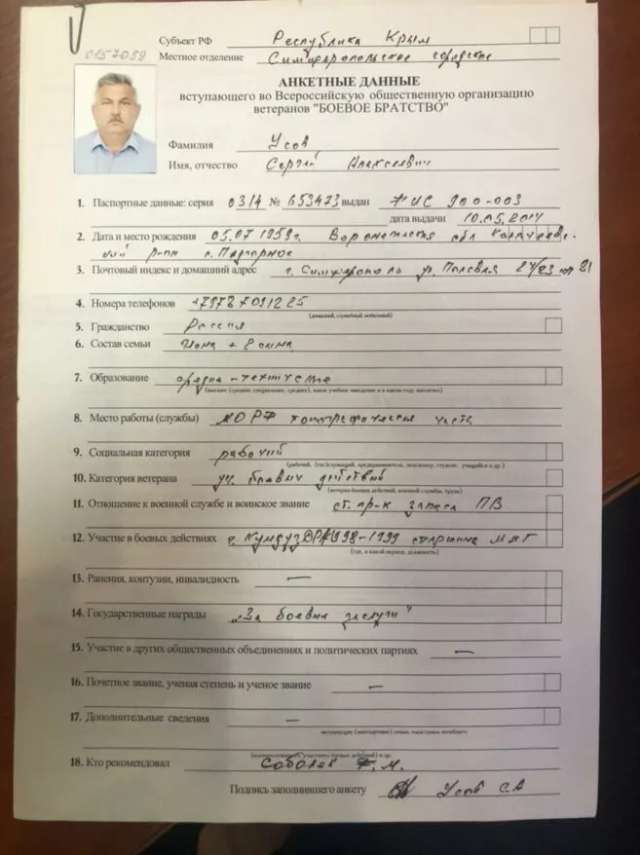 Субъект РФ Республика Крым
0157059
Местное отделение Симферопольское городское
АНКЕТНЫЕ ДАННЫЕ
вступающего во Всероссийскую общественную организацию
ветеранов "БОЕВОЕ БРАТСТВО"
Фамилия Усов
Имя, отчество Сергей Алексеевич
1. Паспортные данные: серия 0314 № 653473 выдан ФМС 900-003
дата выдачи 10.05.2014
2. Дата и место рождения 05.07.1959г. Воронежская обл Калачеевс-
кий р-он с. Подгорное
3. Почтовый индекс и домашний адрес г. Симферополь ул. Полевая
4. Номера телефонов +79787091225
(домашний, служебный мобильный)
5. Гражданство Россия
6. Состав семьи жена +
7. Образование средне-техническое
8. Место работы (службы) МО РФ часть
9. Социальная категория рабочий
10. Категория ветерана уч. боевых действий
(ветеран боевых действий, военной службы, труда)
11. Отношение к военной службе и воинское звание ст. пр-к запаса ПВ
12. Участие в боевых действиях г. Кундуз ДРА 1998-1999 старшина ММГ
(где, в какой период, должность)
13. Ранения, контузии, инвалидность —
14. Государственные награды „За боевые заслуги"
15. Участие в других общественных объединениях и политических партиях —
16. Почетное звание, ученая степень и ученое звание —
17. Дополнительные сведения —
18. Кто рекомендовал Соболев Г. М.
Подпись заполнившего анкету Усов СА